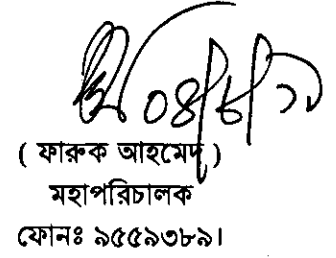 ০৪/৮/১১
( ফারুক আহমেদ )
মহাপরিচালক
ফোনঃ ৯৫৫৯৩৮৯।